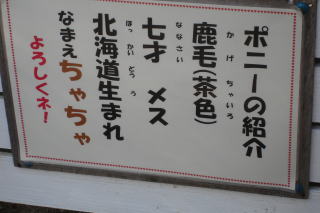 ポニーの紹介
鹿毛(茶色)
かげ ちゃいろ
七才 メス
ななさい
北海道生まれ
ほっかいどう う
なまえちゃちゃ
よろしくネ!